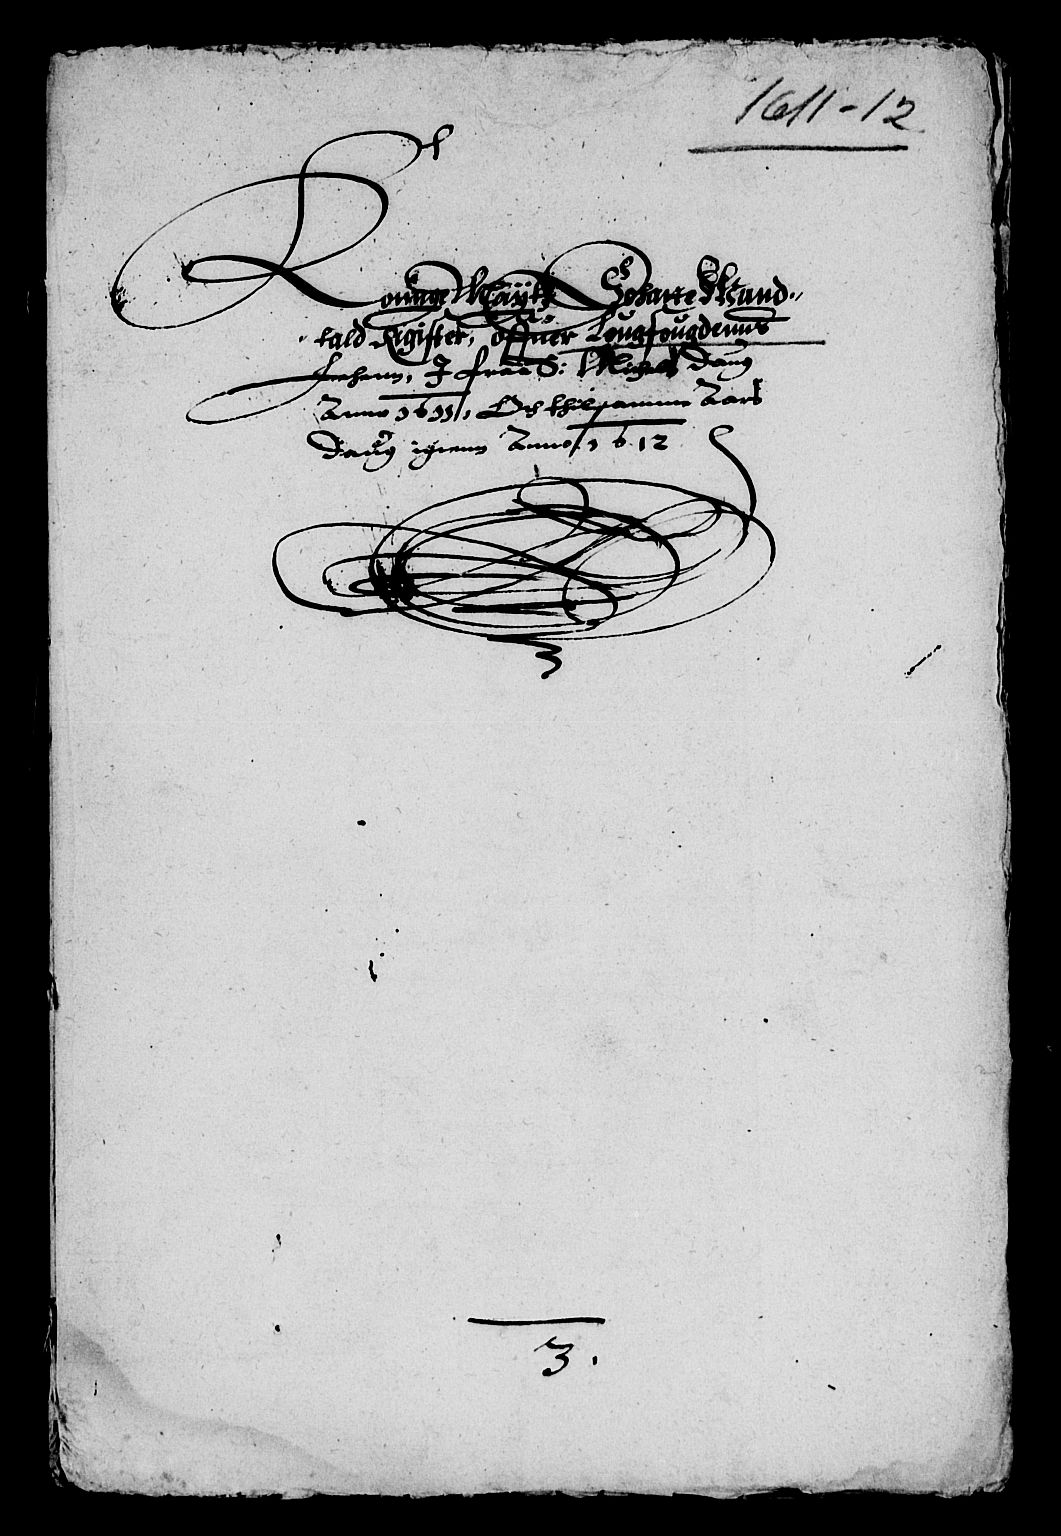 1611-12
Konnge Maÿtts Schatte Mand-
tald Register, offuer Lougfougdenns
Leehenn, J fraa S: Michels Daug
Anno 1611, Och thil samme Aars
Daug igienn Anno 1612
3.